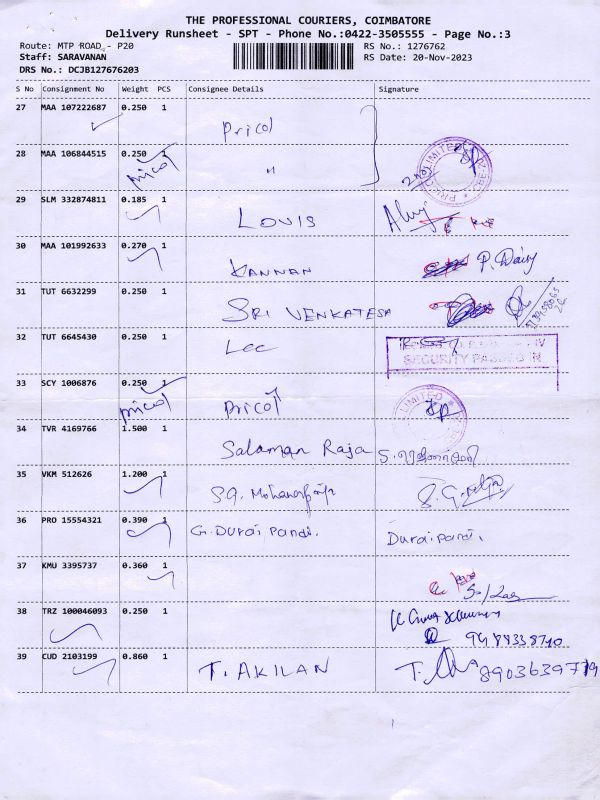 THE PROFESSIONAL COURIERS, COIMBATORE
Delivery Runsheet - SPT - Phone No.:0422-3505555 - Page No.:3
Route: MTP ROAD - P20
RS No.: 1276762
Staff: SARAVANAN
RS Date: 20-Nov-2023
DRS No.: DCJB127676203
S No Consignment No Weight PCS Consignee Details Signature
27 MAA 107222687 0.250 1
Pricol
28 MAA 106844515 0.250 1
pricol "
29 SLM 332874811 0.185 1
LOUIS
30 MAA 101992633 0.270 1
KANNAN P. Daisy
31 TUT 6632299 0.250 1
SRI VENKATESA
32 TUT 6645430 0.250 1
Lee
SECURITY PASSED IN
33 SCY 1006876 0.250 1
pricol Pricol
LIMITED
34 TVR 4169766 1.500 1
Salaman Raja
35 VKM 512626 1.200 1
36 PRO 15554321 0.390 1
G. Durai Pandi. Duraipandi.
37 KMU 3395737 0.360 1
38 TRZ 100046093 0.250 1
39 CUD 2103199 0.860 1
T. AKILAN 8903639719